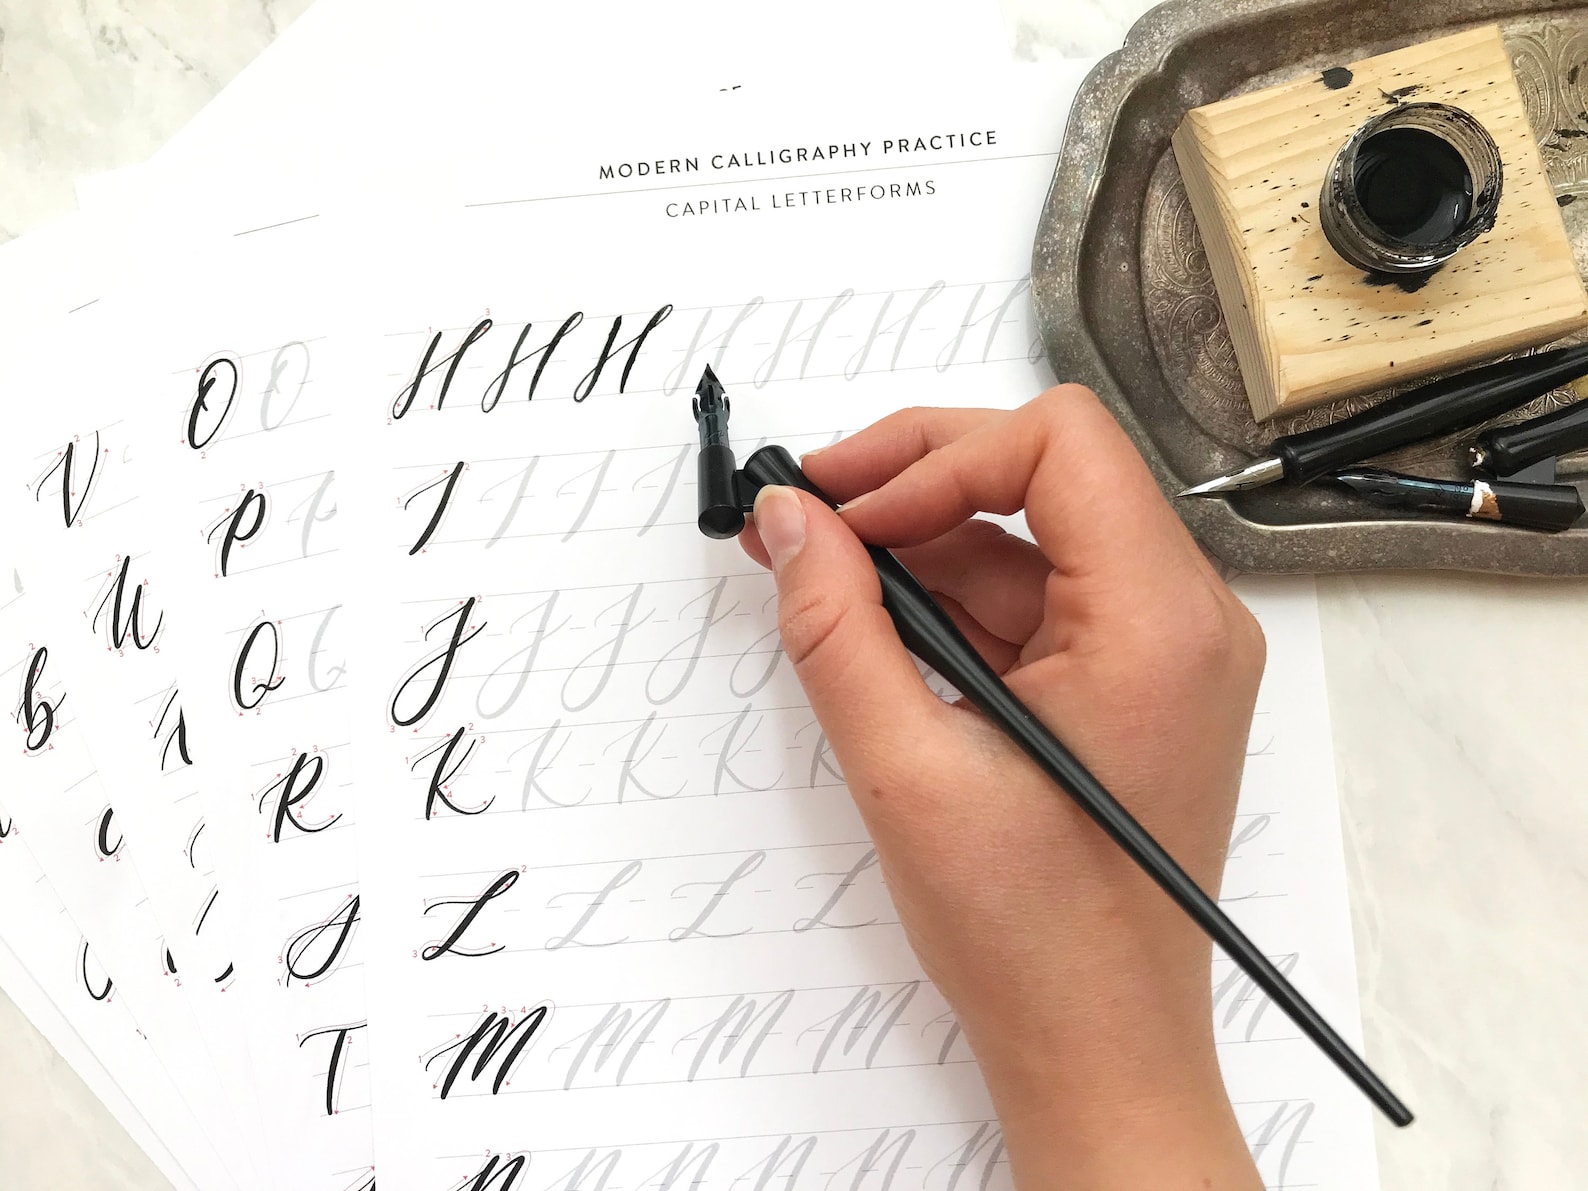 MODERN CALLIGRAPHY PRACTICE
CAPITAL LETTERFORMS
H H H H H H H H
I I I I
J J J J J
K K K K K
L L L L L
M M M M M M
N N N N N N N
O O
P
Q Q
R
S
T
V
U
b